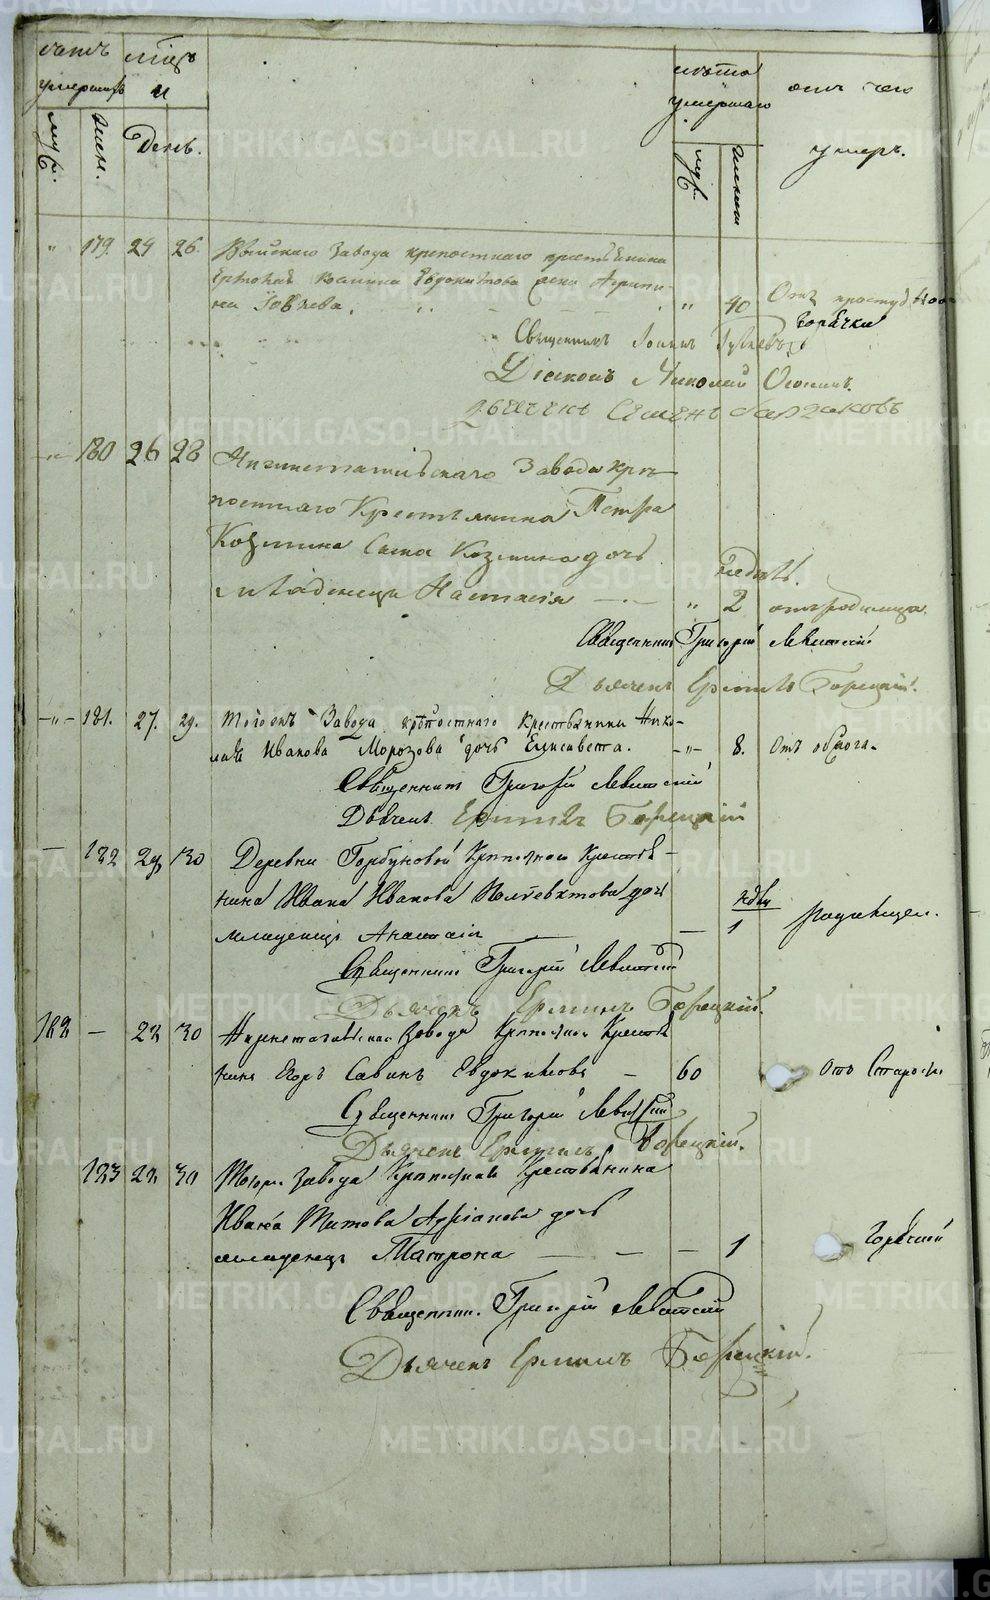 счетъ умершихъ
мѣсяцъ и День.
муж. жен.
лѣта умершаго
муж. женск.
отъ чего умеръ.
" 179. 24 26. Выйскаго Завода крепостнаго крестьянина
Евдокимова жена Агрипи-
на " 40 Отъ простуд
горячки
Священникъ Іоаннъ
Діаконъ Николай
Дьячекъ Семенъ
" 180 26 28 Нижнетагильскаго Завода крѣ-
постнаго Крестьянина Петра
Козмина Сына Козмина дочь
недѣль.
младенецъ Настасія " 2 отъ родимца.
Священникъ Григорій Левитскій
Дьячекъ Ермилъ Борецкій.
" 181. 27. 29. Тогожъ Завода крѣпостнаго Крестьянина Нико-
лая Иванова Морозова дочь Елисавета. " 8. Отъ
Священникъ Григорій Левитскій
Дьячекъ Ермилъ Борецкій
— 182 29 30 Деревни Горбуновой Крѣпостнаго Крестья-
нина Ивана Иванова дочь
младенецъ Анастасія — 1 Родимцем.
Священникъ Григорій Левитскій
Дьячекъ Ермилъ Борецкій.
182 — 30 Нижнетагильскаго Завода Крѣпостной Крестья-
нинъ Егоръ Савинъ Евдокимовъ — 60 Отъ Старости
Священникъ Григорій Левитскій
Дьячекъ Ермилъ Борецкій.
183 30 Тогожъ Завода Крѣпостнаго Крестьянина
Ивана Титова дочь
младенецъ Матрона — — — 1 Горячкой
Священник. Григорій Левитскій
Дьячекъ Ермилъ Борецкій.
METRIKI.GASO-URAL.RU